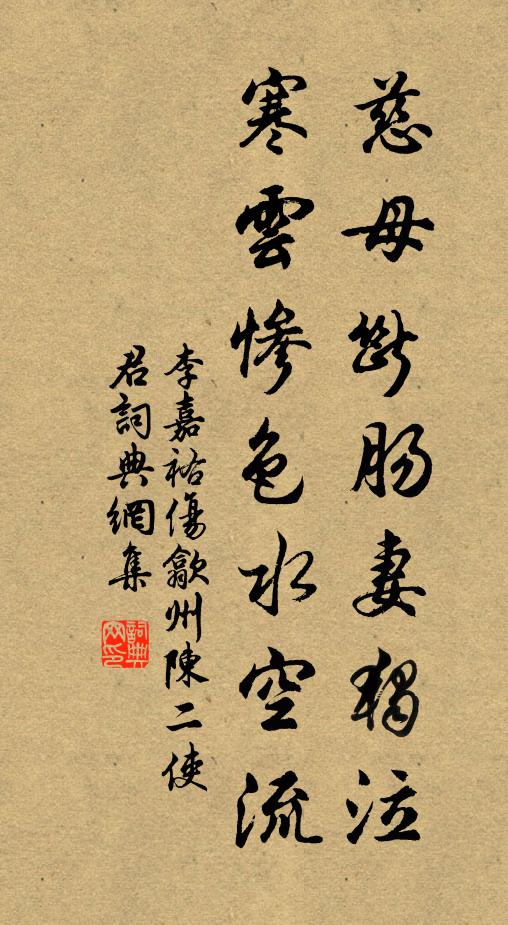 慈母斷肠妻獨泣
寒雲慘色水空流
李嘉祐傷歙州陳二使
君詞典網集
詞典
网印